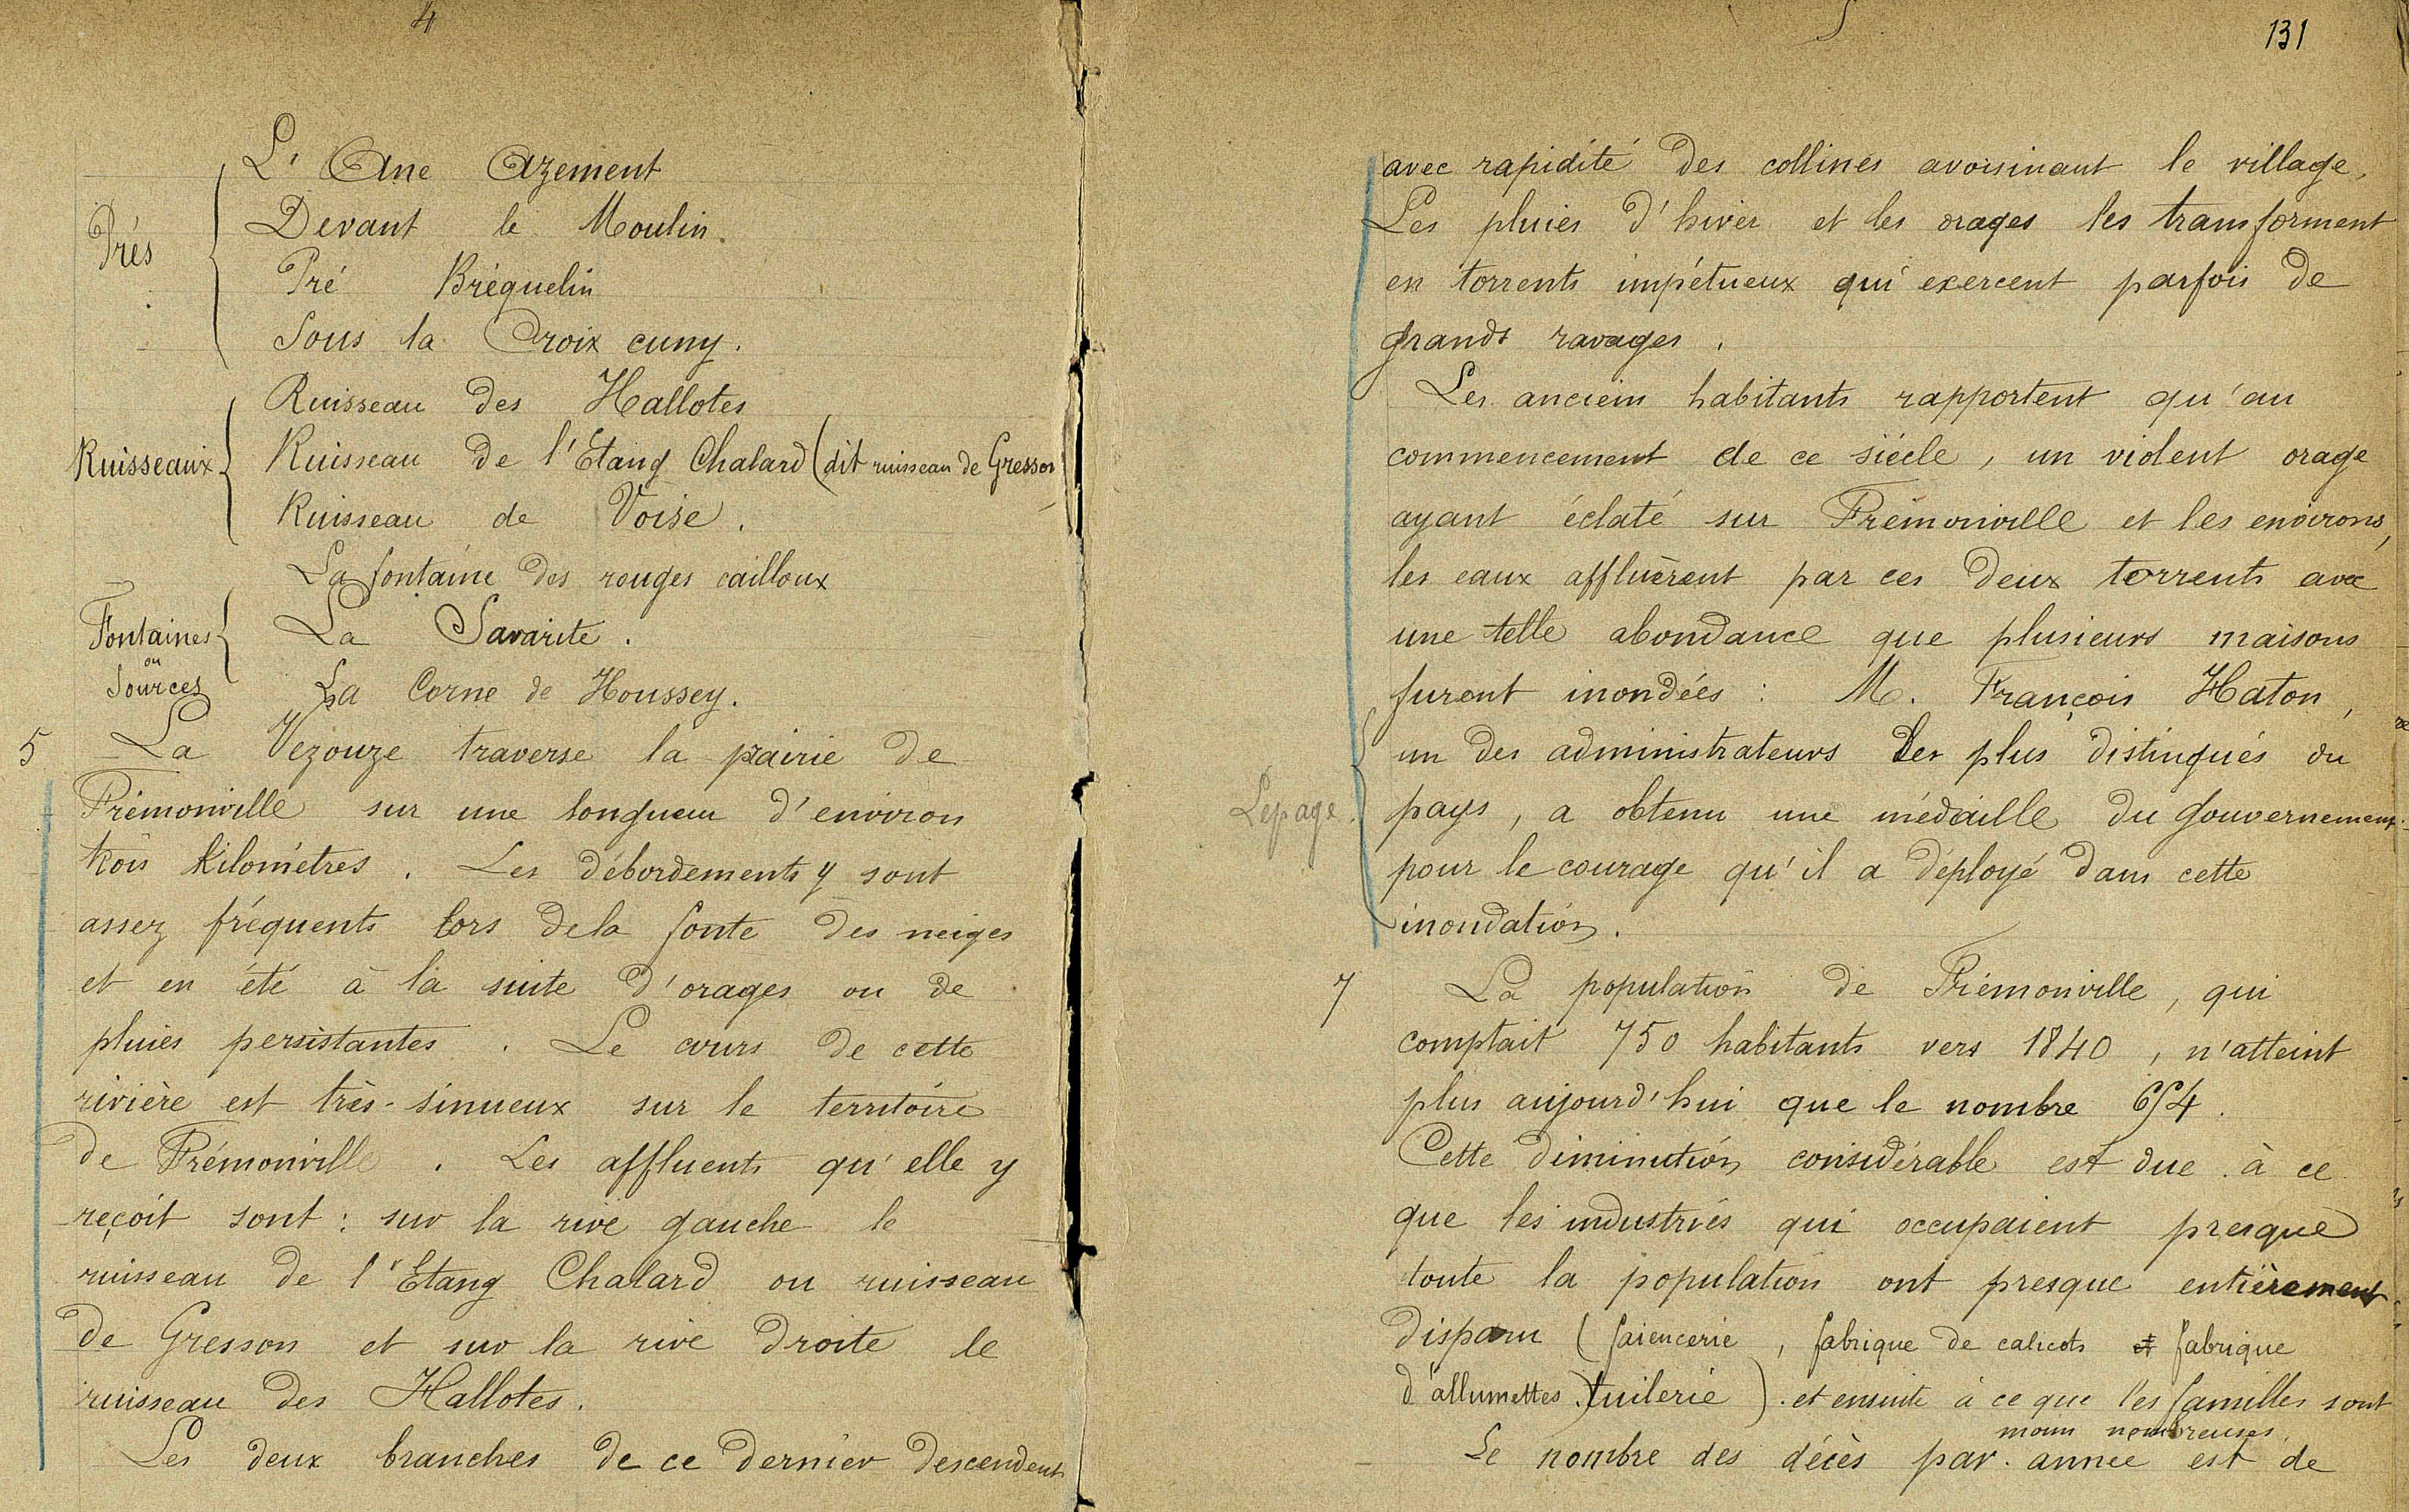 4
L' Ane Azement
Devant le Moulin.
Prés
Pré Bréquelin
Sous la Croix cuny.
Ruisseau des Hallotes
Ruisseaux
Ruisseau de l'Etang Chalard (dit ruisseau de Gresson
Ruisseau de Voise.
La fontaine des rouges cailloux
Fontaines
ou
Sources
La Savarite.
La Corne de Houssey.
5 La Vezouze traverse la prairie de
Frémonville sur une longueur d'environ
trois kilomètres. Les débordements y sont
assez fréquents lors de la fonte des neiges
et en été à la suite d'orages ou de
pluies persistantes. Le cours de cette
rivière est très-sinueux sur le territoire
de Frémonville. Les affluents qu'elle y
reçoit sont : sur la rive gauche le
ruisseau de l'Etang Chalard ou ruisseau
de Gresson et sur la rive droite le
ruisseau des Hallotes.
Les deux branches de ce dernier descendent
5
131
avec rapidité des collines avoisinant le village,
Les pluies d'hiver et les orages les transforment
en torrents impétueux qui exercent parfois de
grands ravages.
Les anciens habitants rapportent qu'au
commencement de ce siècle, un violent orage
ayant éclaté sur Frémonville et les environs,
les eaux affluèrent par ces deux torrents avec
une telle abondance que plusieurs maisons
furent inondées : M. François Haton,
un des administrateurs les plus distingués du
Lepage.
pays, a obtenu une médaille du Gouvernement
pour le courage qu'il a déployé dans cette
inondation.
7 La population de Frémonville, qui
comptait 750 habitants vers 1840, n'atteint
plus aujourd'hui que le nombre 654.
Cette diminution considérable est due à ce
que les industries qui occupaient presque
toute la population ont presque entièrement
disparu (faiencerie, fabrique de calicots et fabrique
d'allumettes.) tuilerie). et ensuite à ce que les familles sont
moins nombreuses.
Le nombre des décès par année est de